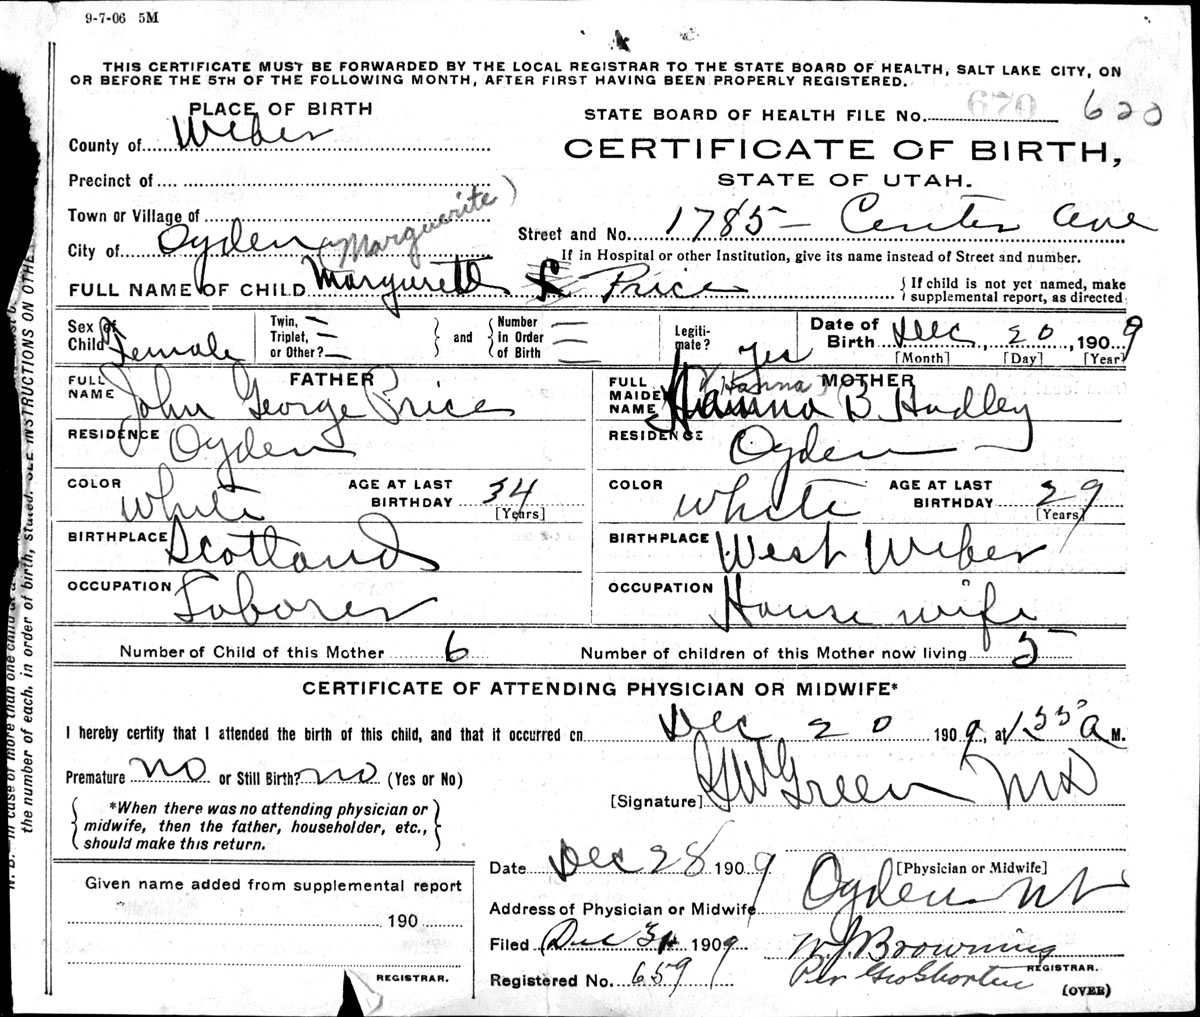 9-7-06 5M
THIS CERTIFICATE MUST BE FORWARDED BY THE LOCAL REGISTRAR TO THE STATE BOARD OF HEALTH, SALT LAKE CITY, ON
OR BEFORE THE 5TH OF THE FOLLOWING MONTH, AFTER FIRST HAVING BEEN PROPERLY REGISTERED.
PLACE OF BIRTH
STATE BOARD OF HEALTH FILE No. 670 620
County of Weber
CERTIFICATE OF BIRTH,
STATE OF UTAH.
Precinct of
Town or Village of
City of Ogden (Marguerite)
Street and No. 1785 — Center Ave
If in Hospital or other Institution, give its name instead of Street and number.
FULL NAME OF CHILD Margurett Price
If child is not yet named, make
supplemental report, as directed
Sex of Child Female
Twin, Triplet, or Other?
and
Number In Order of Birth
Legiti- mate? Yes
Date of Birth Dec 20, 1909
[Month] [Day] [Year]
FATHER
FULL NAME John George Price
MOTHER
FULL MAIDEN NAME (Hanna) Hanna B. Hadley
RESIDENCE Ogden
RESIDENCE Ogden
COLOR White AGE AT LAST BIRTHDAY 34 [Years]
COLOR White AGE AT LAST BIRTHDAY 29 [Years]
BIRTHPLACE Scotland
BIRTHPLACE West Weber
OCCUPATION Laborer
OCCUPATION House wife
Number of Child of this Mother 6 Number of children of this Mother now living 5
CERTIFICATE OF ATTENDING PHYSICIAN OR MIDWIFE*
I hereby certify that I attended the birth of this child, and that it occurred on Dec 20 1909, at 1 55 A M.
Premature no or Still Birth? no (Yes or No)
[Signature] GW Green MD
*When there was no attending physician or
midwife, then the father, householder, etc.,
should make this return.
[Physician or Midwife]
Date Dec 28 1909
Given name added from supplemental report
190
REGISTRAR.
Address of Physician or Midwife Ogden Ut
Filed Dec 31 1909 W.J. Browning
REGISTRAR.
Registered No. 659 Per Geo Shorten
(OVER)
in order of birth, stated. SEE INSTRUCTIONS ON OTHE
the number of each,
N. B. In case of more than one child at